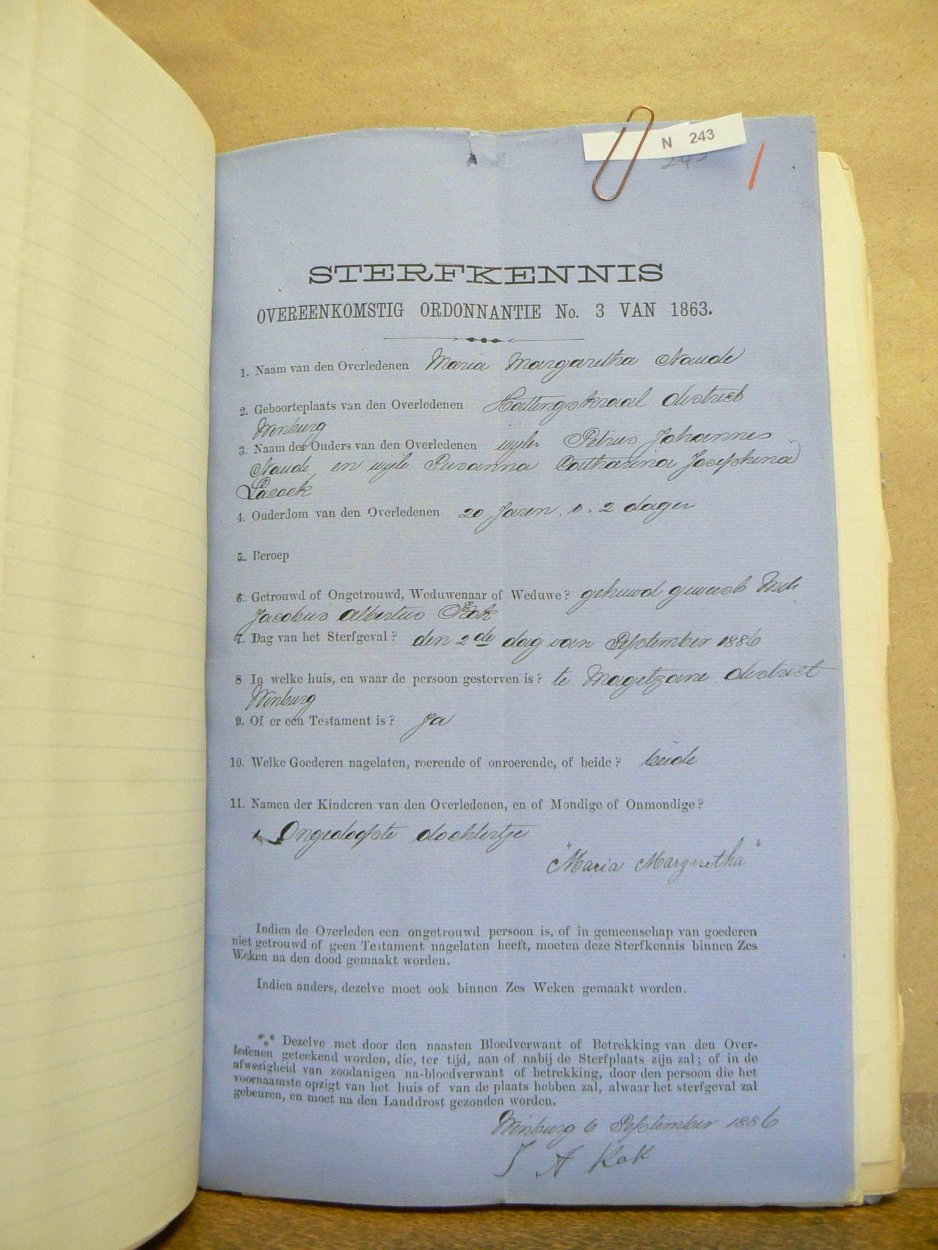 N 243
243
STERFKENNIS
OVEREENKOMSTIG ORDONNANTIE No. 3 VAN 1863.
1. Naam van den Overledenen Maria Margaretha Naude
2. Geboorteplaats van den Overledenen Hattingskraal district
Winburg
3. Naam der Ouders van den Overledenen wijlen Petrus Johannes
Naude en wijle Susanna Catharina Josephina
Lacock
4. Ouderdom van den Overledenen 20 Jaren . 2 dagen
5. Beroep
6. Getrouwd of Ongetrouwd, Weduwenaar of Weduwe? gehuwd geweest met
Jacobus Albertus Kok
7. Dag van het Sterfgeval? den 2de dag van September 1886
8 In welke huis, en waar de persoon gestorven is? te Magetzane district
Winburg
9. Of er een Testament is? Ja
10. Welke Goederen nagelaten, roerende of onroerende, of beide? beide
11. Namen der Kinderen van den Overledenen, en of Mondige of Onmondige?
Ongedoopte dochtertje
"Maria Margaretha"
Indien de Overleden een ongetrouwd persoon is, of in gemeenschap van goederen
niet getrouwd of geen Testament nagelaten heeft, moeten deze Sterfkennis binnen Zes
Weken na den dood gemaakt worden.
Indien anders, dezelve moet ook binnen Zes Weken gemaakt worden.
*** Dezelve met door den naasten Bloedverwant of Betrekking van den Over-
ledenen geteekend worden, die, ter tijd, aan of nabij de Sterfplaats zijn zal; of in de
afwezigheid van zoodanigen na-bloedverwant of betrekking, door den persoon die het
voornaamste opzigt van het huis of van de plaats hebben zal, alwaar het sterfgeval zal
gebeuren, en moet na den Landdrost gezonden worden.
Winburg 6 September 1886
J A Kok